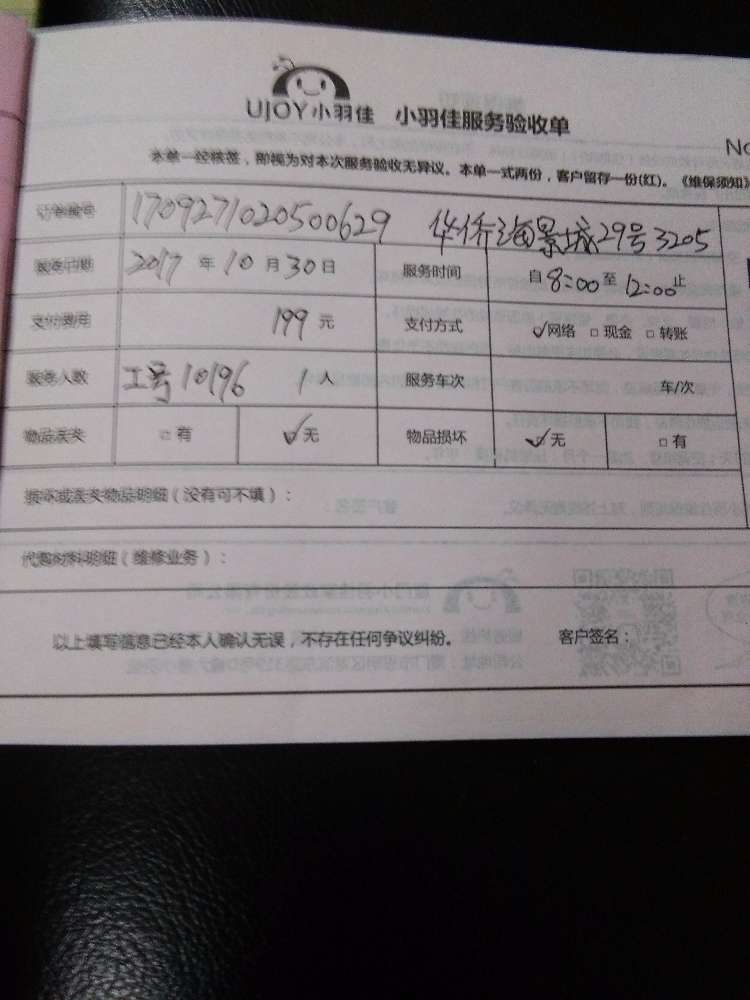 UJOY小羽佳 小羽佳服务验收单
No
本单一经核签，即视为对本次服务验收无异议。本单一式两份，客户留存一份(红)。《维保须知》
订单编号 1709271020500629 华侨海景城29号3205
服务日期 2017年10月30日 服务时间 自8:00至12:00止
支付费用 199元 支付方式 ✓网络 □现金 □转账
服务人数 工号10196 1人 服务车次 车/次
物品丢失 □有 ✓无 物品损坏 ✓无 □有
损坏或丢失物品明细（没有可不填）：
代购材料明细（维修业务）：
以上填写信息已经本人确认无误，不存在任何争议纠纷。 客户签名：